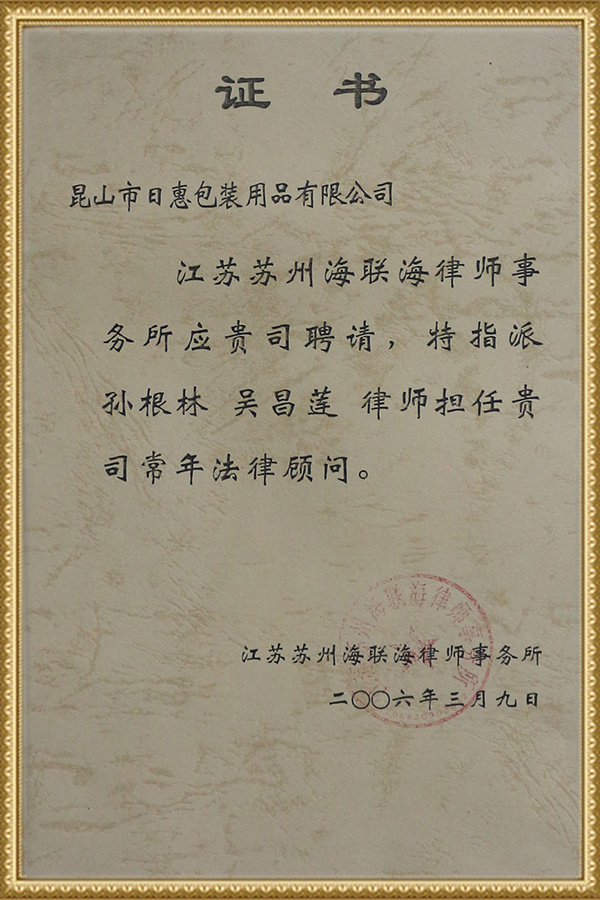 证 书
昆山市日惠包装用品有限公司
江苏苏州海联海律师事
务所应贵司聘请，特指派
孙根林 吴昌莲 律师担任贵
司常年法律顾问。
江苏苏州海联海律师事务所
二〇〇六年三月九日